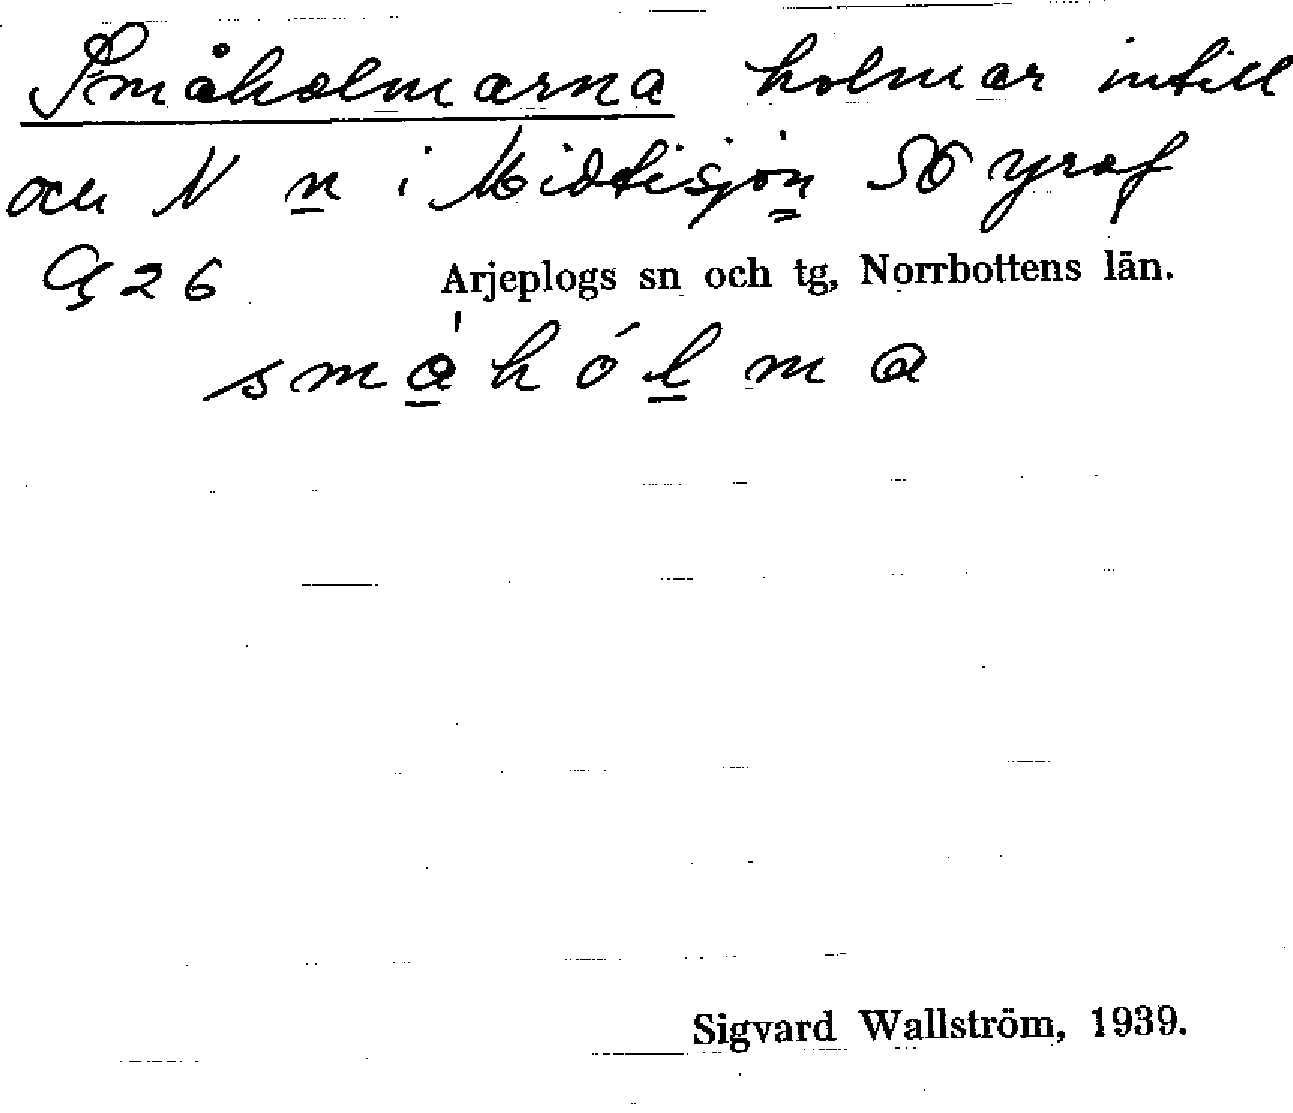 Småholmarna holmar intill
och N n i Midtisjön SO graf
G 26 Arjeplogs sn och tg, Norrbottens län.
småhólma
Sigvard Wallström, 1939.